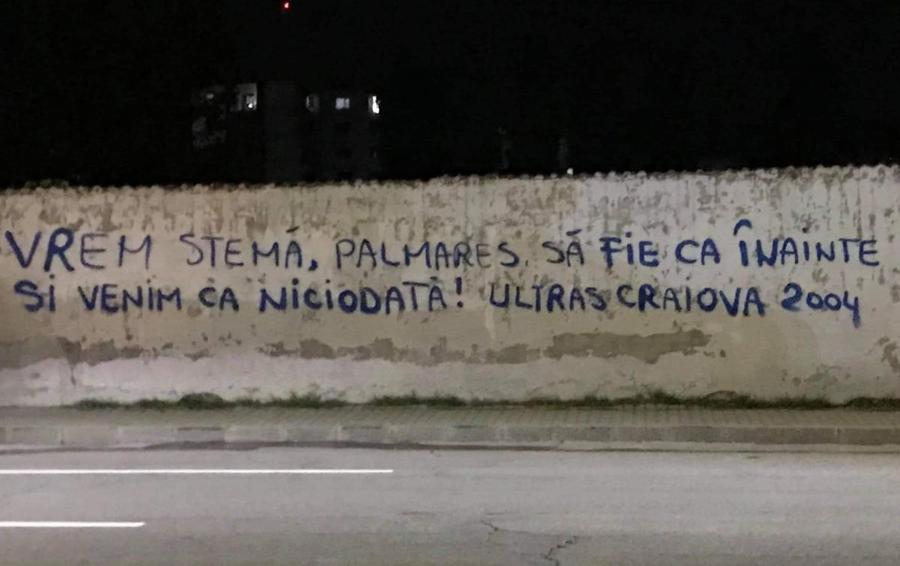 VREM STEMĂ, PALMARES, SĂ FIE CA ÎNAINTE
SI VENIM CA NICIODATĂ! ULTRAS CRAIOVA 2004